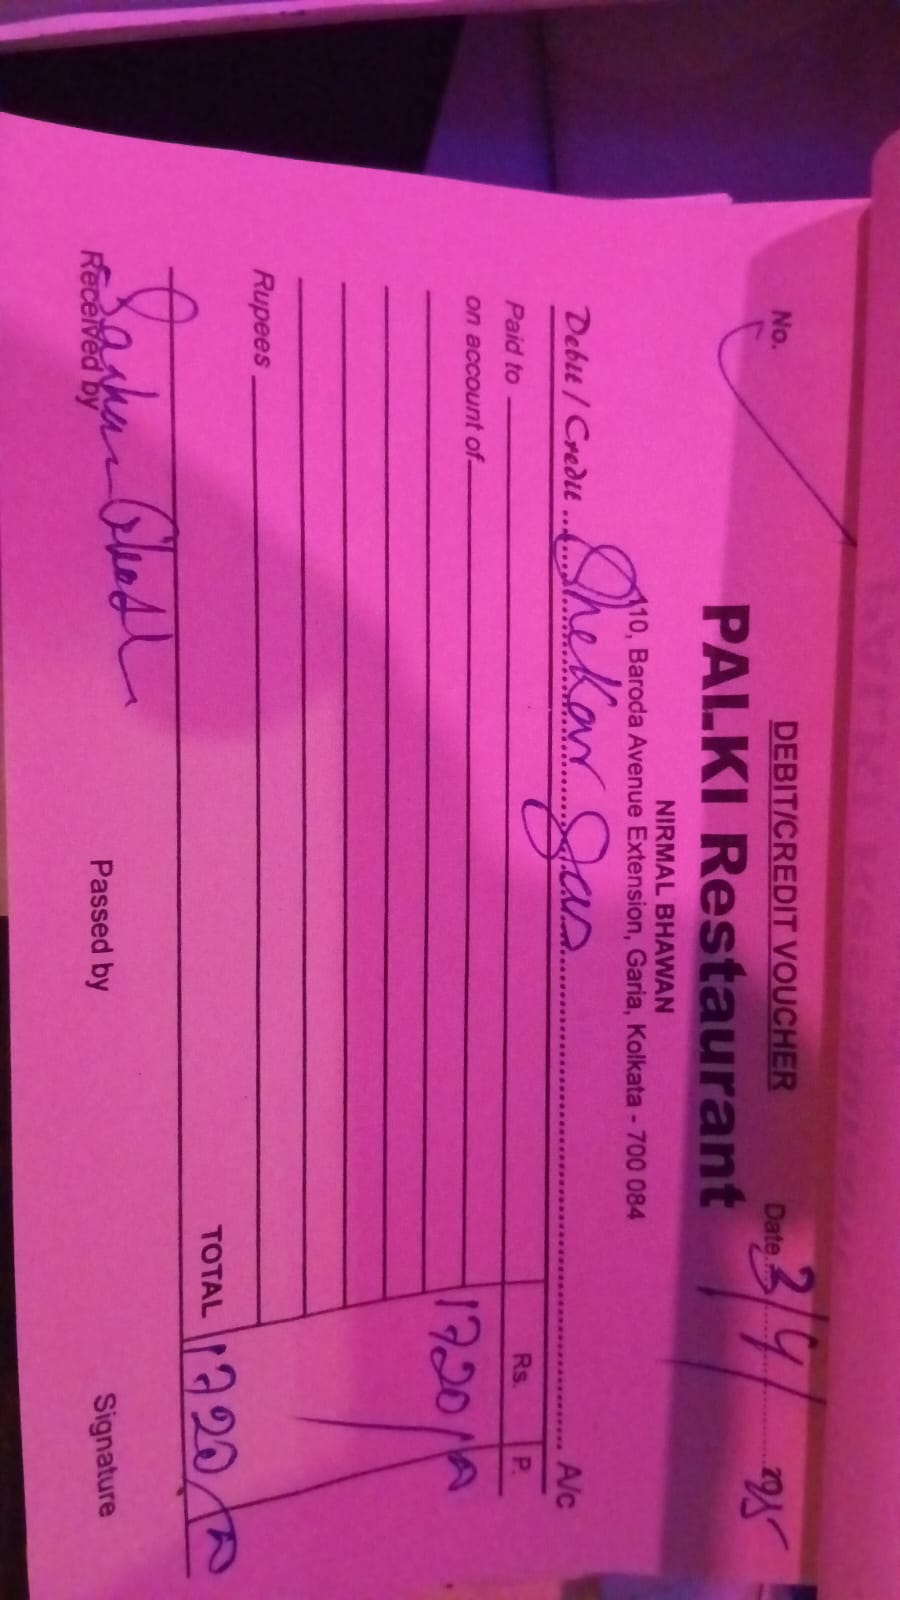 DEBIT/CREDIT VOUCHER
No. Date 3/4/ 025
PALKI Restaurant
NIRMAL BHAWAN
110, Baroda Avenue Extension, Garia, Kolkata - 700 084
Debit / Credit Shekar A/c
Paid to Rs. P.
on account of 1720/-
Rupees
TOTAL 1720/-
Received by Passed by Signature